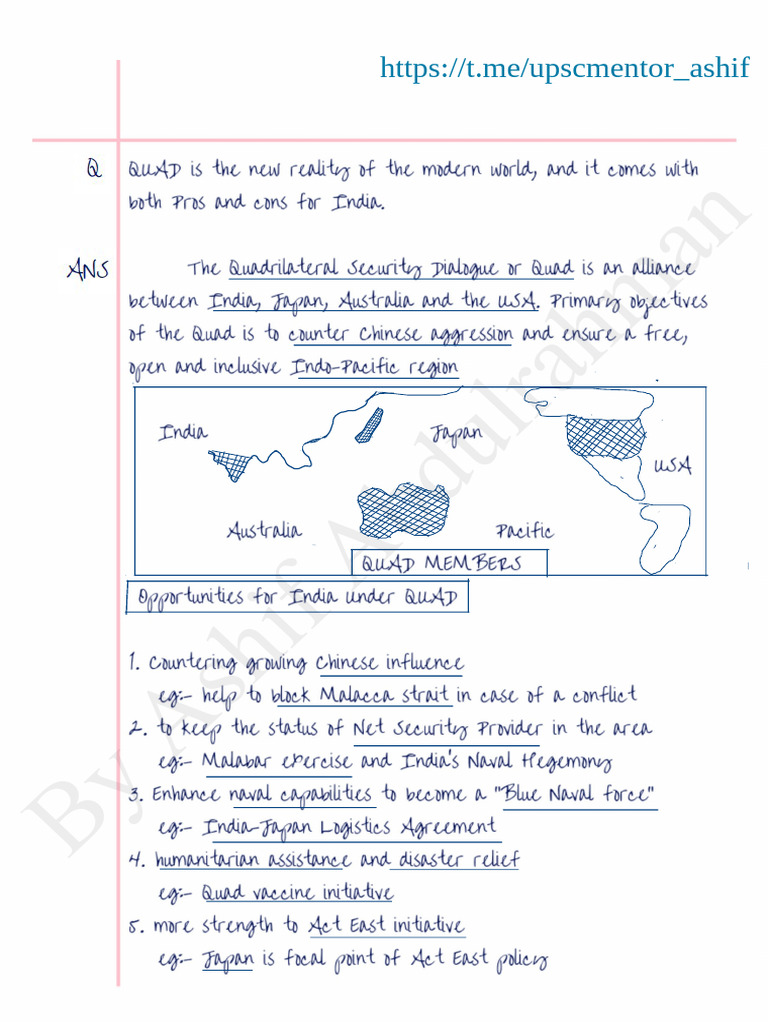 https://t.me/upscmentor_ashif
Q QUAD is the new reality of the modern world, and it comes with
both Pros and cons for India.
ANS The Quadrilateral Security Dialogue or Quad is an alliance
between India, Japan, Australia and the USA. Primary objectives
of the Quad is to counter Chinese aggression and ensure a free,
open and inclusive Indo-Pacific region
India
Japan
USA
Australia
Pacific
QUAD MEMBERS
Opportunities for India under QUAD
1. Countering growing Chinese influence
eg:- help to block Malacca strait in case of a conflict
2. to keep the status of Net Security Provider in the area
eg:- Malabar exercise and India's Naval Hegemony
3. Enhance naval capabilities to become a "Blue Naval force"
eg:- India-Japan Logistics Agreement
4. humanitarian assistance and disaster relief
eg:- Quad vaccine initiative
5. more strength to Act East initiative
eg:- Japan is focal point of Act East policy
By Ashif Abdulrahman